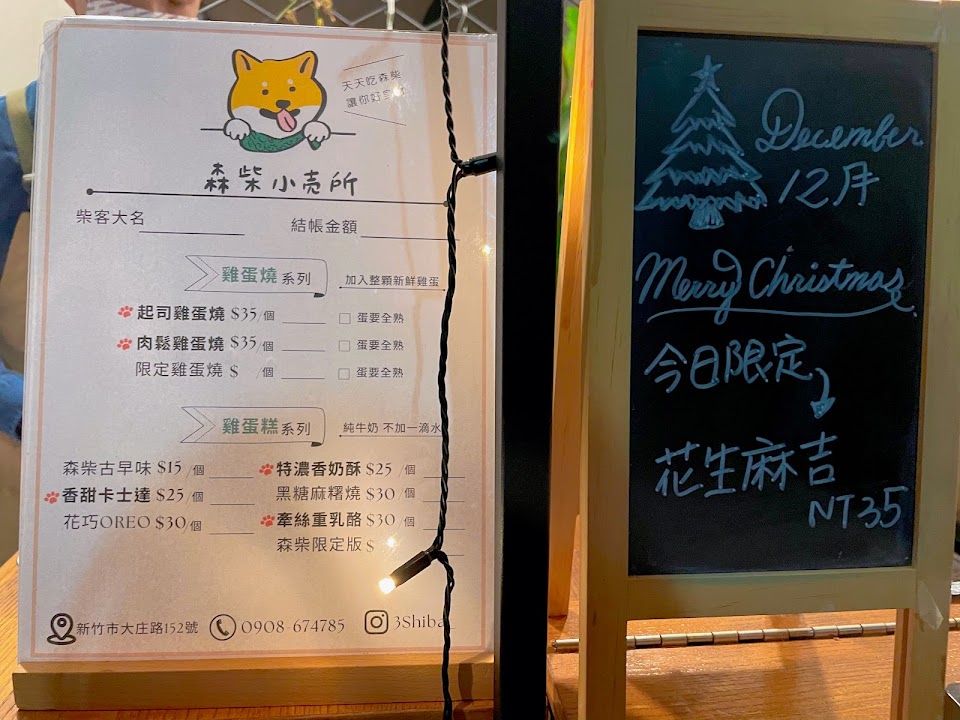 天天吃森柴
讓你好
森柴小売所
柴客大名
結帳金額
雞蛋燒系列
加入整顆新鮮雞蛋
起司雞蛋燒 $35/個 蛋要全熟
肉鬆雞蛋燒 $35/個 蛋要全熟
限定雞蛋燒 $ /個 蛋要全熟
雞蛋糕系列
純牛奶 不加一滴水
森柴古早味 $15/個
香甜卡士達 $25/個
花巧OREO $30/個
特濃香奶酥 $25/個
黑糖麻糬燒 $30/個
牽絲重乳酪 $30/個
森柴限定版 $
新竹市大庄路152號
0908-674785
3Shiba_
December
12月
Merry Christmas
今日限定
花生麻吉
NT35